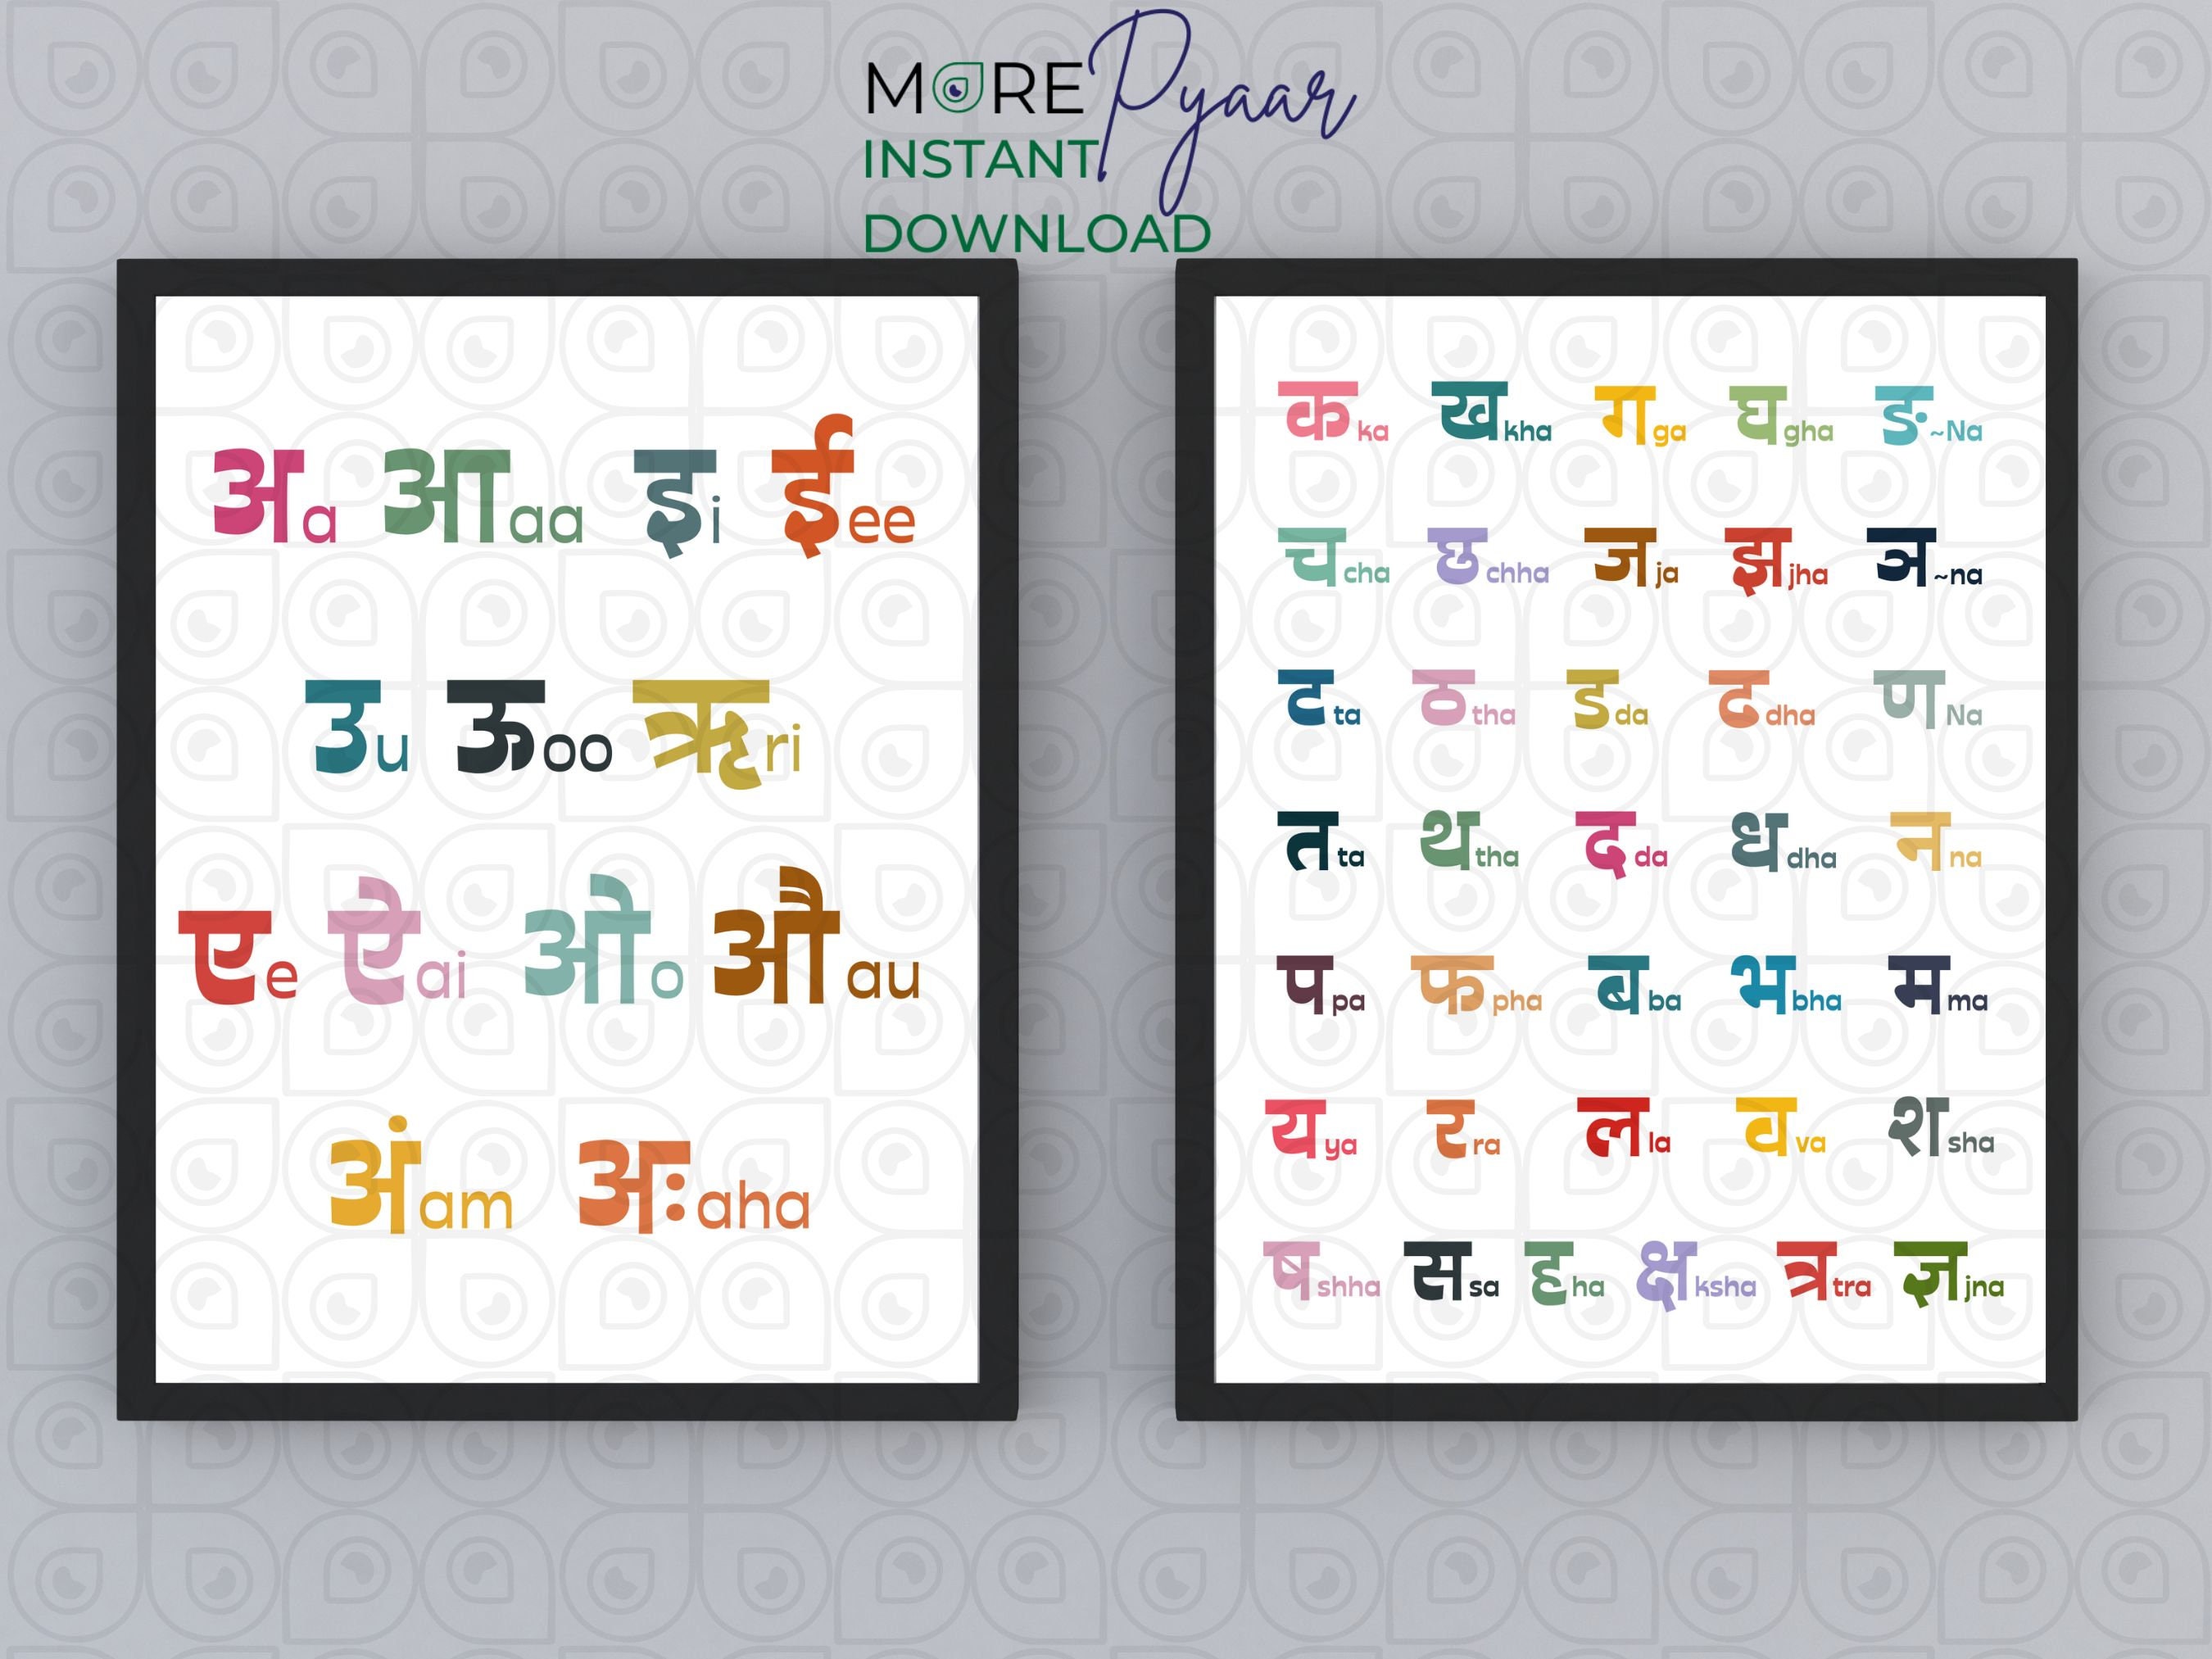 MORE Pyaar
INSTANT
DOWNLOAD
अ a आ aa इ i ई ee
उ u ऊ oo ऋ ri
ए e ऐ ai ओ o औ au
अं am अः aha
क ka ख kha ग ga घ gha ङ ~Na
च cha छ chha ज ja झ jha ञ ~na
ट ta ठ tha ड da ढ dha ण Na
त ta थ tha द da ध dha न na
प pa फ pha ब ba भ bha म ma
य ya र ra ल la व va श sha
ष shha स sa ह ha क्ष ksha त्र tra ज्ञ jna